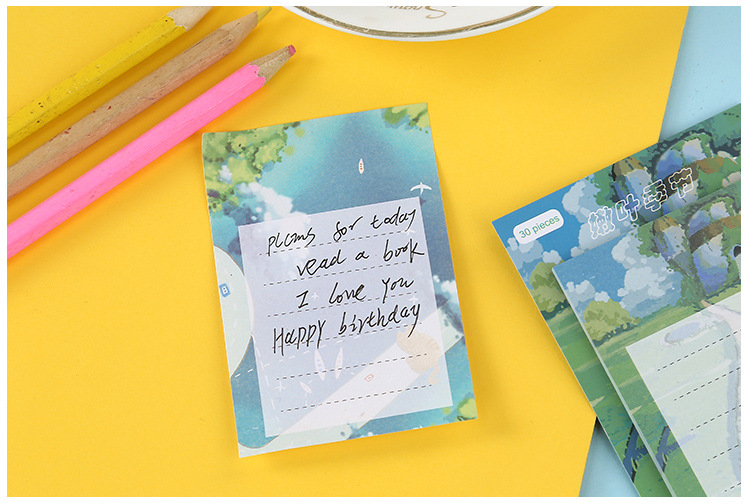 plans for today
read a book
I love you
Happy birthday
B
30 pieces
树叶季节